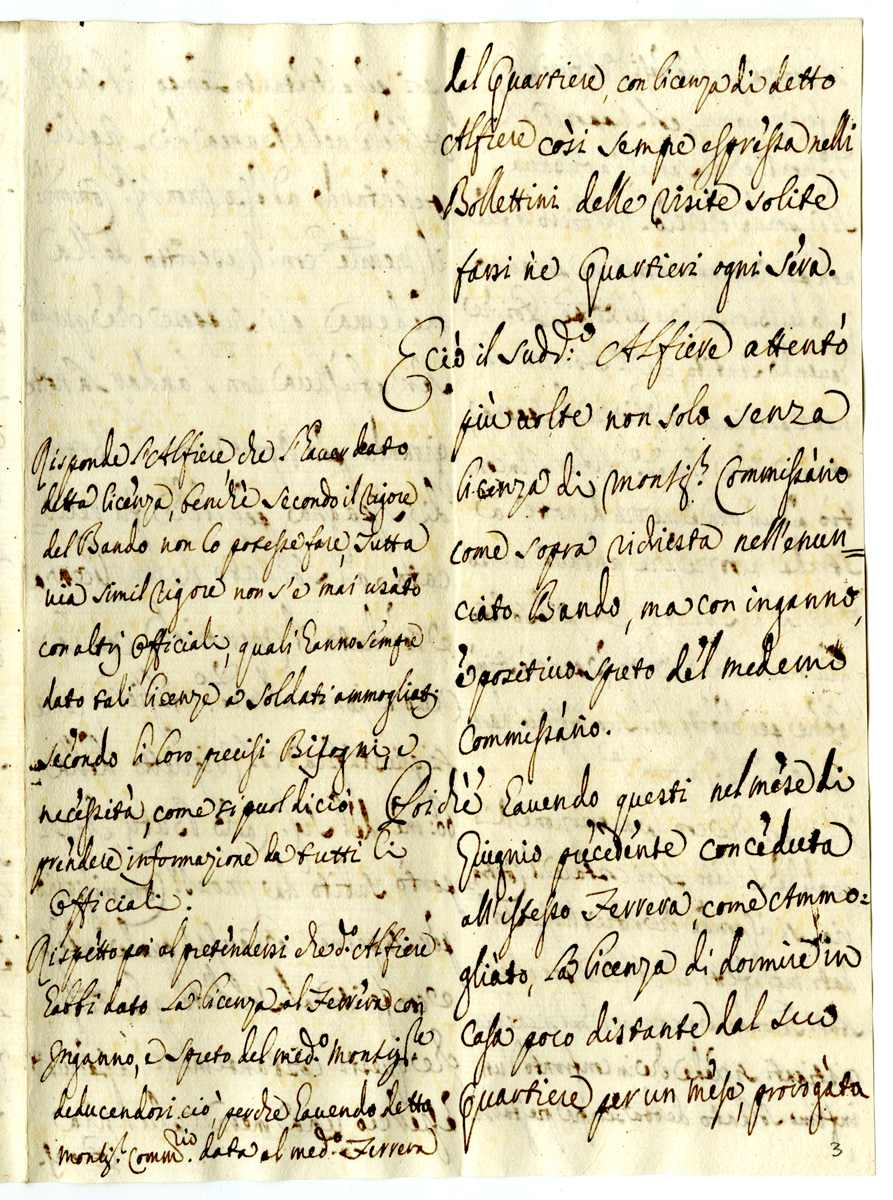 dal Quartiere, con licenza di detto
Alfiere così sempre espressa nelli
Bollettini delle visite solite
farsi ne Quartieri ogni sera.
E ciò il sudd:o Alfiere attentò
più volte non solo senza
licenza di Monsig.r Commissario
come sopra richiesta nell'enun=
ciato Bando, ma con inganno,
e positivo spreto del medemo
Commissario.
Poichè havendo questi nel mese di
Giugnio precedente conceduta
all'istesso Ferrera, come Ammo=
gliato, la licenza di dormire in
casa poco distante dal suo
Quartiere per un mese, prorogata
Risponde l'Alfiere, che l'haver dato
detta licenza, benchè secondo il rigore
del Bando non lo potesse fare, Tutta
via simil rigore non s'è mai usato
con altrj Officiali, quali hanno sempre
dato tali licenze a soldati ammogliatj
secondo li loro precisi Bisogni, e
necessità, come si puol di ciò
prendere informazione da tutti li
Officiali:
Rispetto poi al pretendersi che d.o Alfiere
habbi dato la licenza al Ferrera con
Inganno, e spreto del med.o Monsig.re
deducendosi ciò, perche havendo detto
Monsig.r Comm.rio data al med.o Ferrera
3